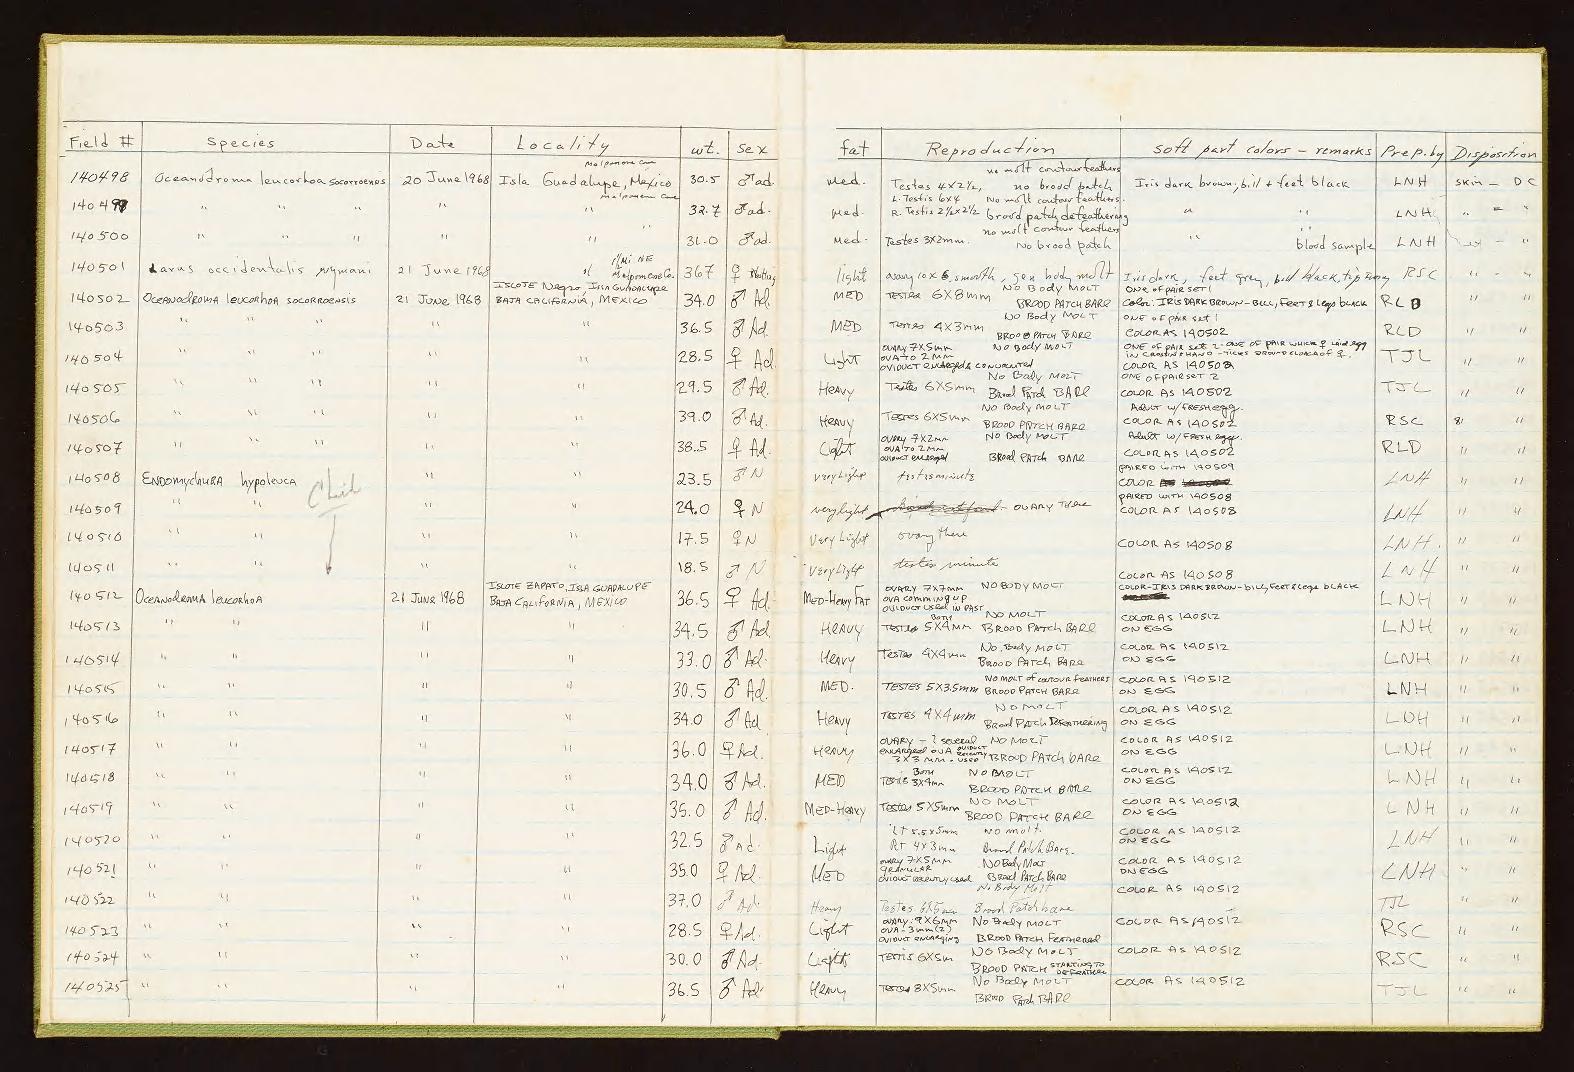 Field # Species Date Locality wt. sex fat Reproduction soft part colors - remarks Prep. by Disposition
Melpomene Cove no molt contour feathers
140498 Oceanodroma leucorhoa socorroensis 20 June 1968 Isla Guadalupe, Mexico 30.5 ♂ad. med. Testes 4x2½, no brood patch Iris dark brown, bill + feet black LNH skin - DC
Melpomene Cove L. Testis 6x4 No molt contour feathers.
140499 " " " " " 32.7 ♂ad. med. R. Testis 2½x2½ brood patch defeathering " " LNH " " "
no molt contour feathers
140500 " " " " " 31.0 ♂ad. med. Testes 3x2mm. No brood patch " " blood sample LNH " "
Mi NE
140501 Larus occidentalis wymani 21 June 1968 Melpomene Co. 367 ♀ light ovary 10x6, smooth, gen body molt Iris dark, feet grey, bill black, tip RSC " "
ISLOTE Negro, ISLA GUADALUPE No Body MOLT ONE OF PAIR SET 1
140502 Oceanodroma leucorhoa socorroensis 21 June 1968 BAJA CALIFORNIA, MEXICO 34.0 ♂ Ad. MED TESTES 6X8mm BROOD PATCH BARE Color: IRIS DARK BROWN - BILL, FEET & legs BLACK RLD " "
No Body MOLT ONE OF PAIR SET 1
140503 " " " " " 36.5 ♂ Ad. MED TESTES 4X3mm BROOD PATCH BARE COLOR AS 140502 RLD " "
OVARY 7X5mm No Body MOLT ONE OF PAIR SET 2 - ONE OF PAIR WHICH ♀ laid egg
140504 " " " " " 28.5 ♀ Ad Light OVA TO 2MM IN CROSSIN'S HAND - TICKS AROUND CLOACA OF ♀. TJL " "
OVIDUCT enlarged & convoluted COLOR AS 140502
No Body MOLT ONE OF PAIR SET 2
140505 " " " " " 29.5 ♂ Ad. HEAVY Testes 6X5mm Brood Patch BARE COLOR AS 140502 TJL " "
No Body MOLT Adult w/ FRESH egg.
140506 " " " " " 39.0 ♂ Ad. HEAVY TESTES 6X5mm BROOD PATCH BARE COLOR AS 140502 RSC "
OVARY 7X2mm No Body MOLT Adult w/ FRESH egg.
140507 " " " " " 38.5 ♀ Ad. Light OVA TO 2MM COLOR AS 140502 RLD " "
OVIDUCT enlarged BROOD PATCH BARE
PAIRED WITH 140509
140508 ENDOMYCHURA hypoleuca " " 23.5 ♂ N very light testes minute COLOR LNH " "
Chick PAIRED WITH 140508
140509 " " " " 24.0 ♀ N very light OVARY There COLOR AS 140508 LNH " "
140510 " " " " 17.5 ♀ N Very Light ovary there COLOR AS 140508 LNH. " "
140511 " " " " 18.5 ♂ N Very Light testes minute COLOR AS 140508 LNH " "
ISLOTE ZAPATO, ISLA GUADALUPE OVARY 7X7mm NO BODY MOLT COLOR - IRIS DARK BROWN - bill, Feet & legs BLACK
140512 Oceanodroma leucorhoa 21 June 1968 BAJA CALIFORNIA, MEXICO 36.5 ♀ Ad. MED-HEAVY FAT OVA COMMING UP LNH " "
OVIDUCT USED IN PAST
Both NO MOLT COLOR AS 140512
140513 " " " " 34.5 ♂ Ad. HEAVY TESTES 5X4MM BROOD PATCH BARE ON EGG LNH " "
No Body MOLT COLOR AS 140512
140514 " " " " 33.0 ♂ Ad. Heavy Testes 4X4mm BROOD PATCH BARE ON EGG LNH " "
NO MOLT of CONTOUR FEATHERS COLOR AS 140512
140515 " " " " 30.5 ♂ Ad. MED. TESTES 5X3.5mm BROOD PATCH BARE ON EGG LNH " "
NO MOLT COLOR AS 140512
140516 " " " " 34.0 ♂ Ad Heavy TESTES 4X4mm Brood PATCH DEFEATHERING ON EGG LNH " "
OVARY - 1 several NO MOLT COLOR AS 140512
140517 " " " " 36.0 ♀ Ad. HEAVY ENLARGED OVA OVIDUCT RECENTLY ON EGG LNH " "
3X3 MM. USED BROOD PATCH BARE
Both NO MOLT COLOR AS 140512
140518 " " " " 34.0 ♂ Ad. MED TESTIS 3X4mm BROOD PATCH BARE ON EGG LNH " "
NO MOLT COLOR AS 140512
140519 " " " " 35.0 ♂ Ad. MED-HEAVY TESTES 5X5mm BROOD PATCH BARE ON EGG LNH " "
LT 5.5x5mm NO Molt. COLOR AS 140512
140520 " " " " 32.5 ♂ Ad. Light RT 4X3mm Brood Patch Bare. ON EGG LNH " "
OVARY 7X5MM NO Body Molt COLOR AS 140512
140521 " " " " 35.0 ♀ Ad. MED GRANULAR ON EGG LNH " "
OVIDUCT recently used Brood Patch BARE
No Body Molt COLOR AS 140512
140522 " " " " 37.0 ♂ Ad. Heavy Testes 6X5mm Brood Patch bare TJL " "
OVARY: 9X6mm No Body MOLT COLOR AS 140512
140523 " " " " 28.5 ♀ Ad. Light OVA - 3mm (2) RSC " "
OVIDUCT ENLARGING BROOD PATCH FEATHERED
140524 " " " " 30.0 ♂ Ad. Light TESTIS 6X5m NO Body MOLT COLOR AS 140512 RSC " "
BROOD PATCH STARTING TO DEFEATHER
140525 " " " " 36.5 ♂ Ad HEAVY TESTES 8X5mm No Body MOLT COLOR AS 140512 TJL " "
BROOD PATCH BARE